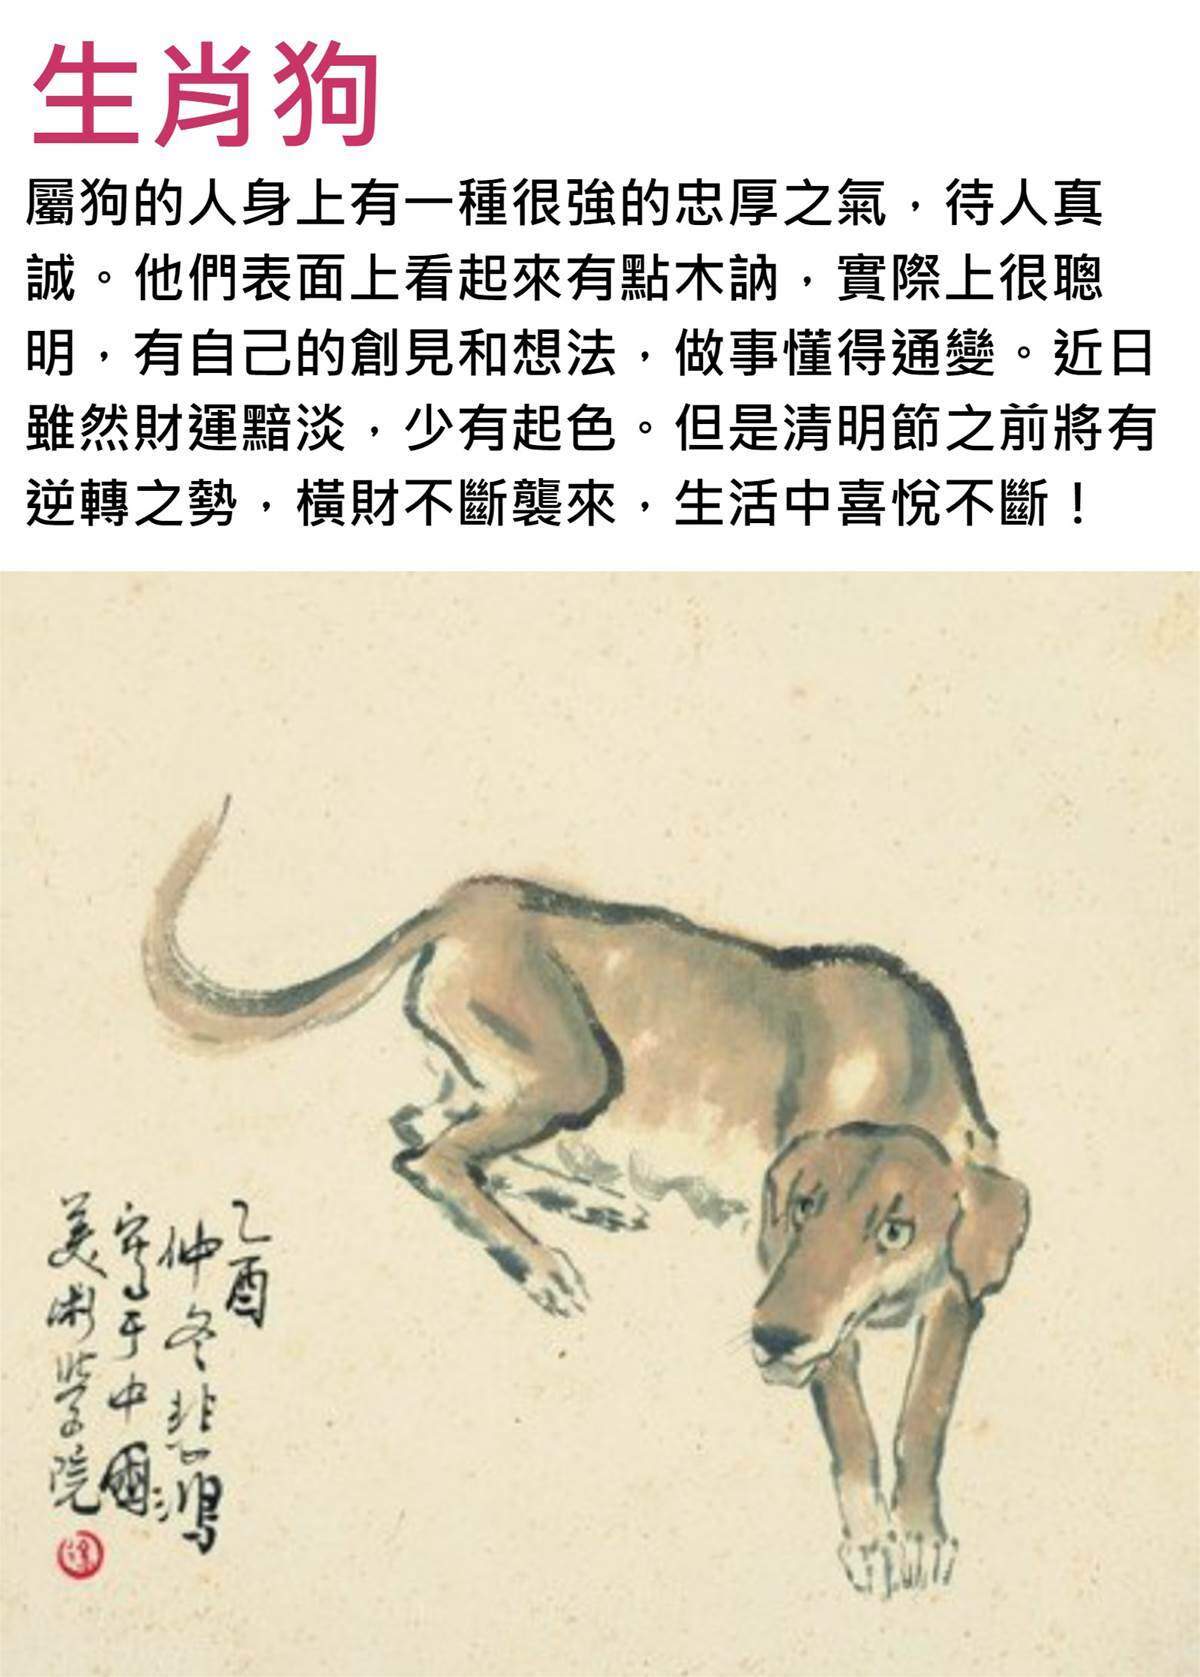 生肖狗
屬狗的人身上有一種很強的忠厚之氣，待人真
誠。他們表面上看起來有點木訥，實際上很聰
明，有自己的創見和想法，做事懂得通變。近日
雖然財運黯淡，少有起色。但是清明節之前將有
逆轉之勢，橫財不斷襲來，生活中喜悅不斷！
乙酉
仲冬悲鴻
寫于中國
美術學院
徐